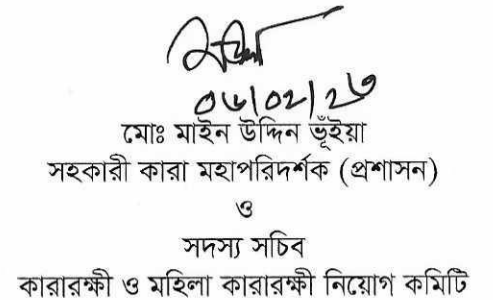 ০৬/০২/২৬
মোঃ মাইন উদ্দিন ভূঁইয়া
সহকারী কারা মহাপরিদর্শক (প্রশাসন)
ও
সদস্য সচিব
কারারক্ষী ও মহিলা কারারক্ষী নিয়োগ কমিটি